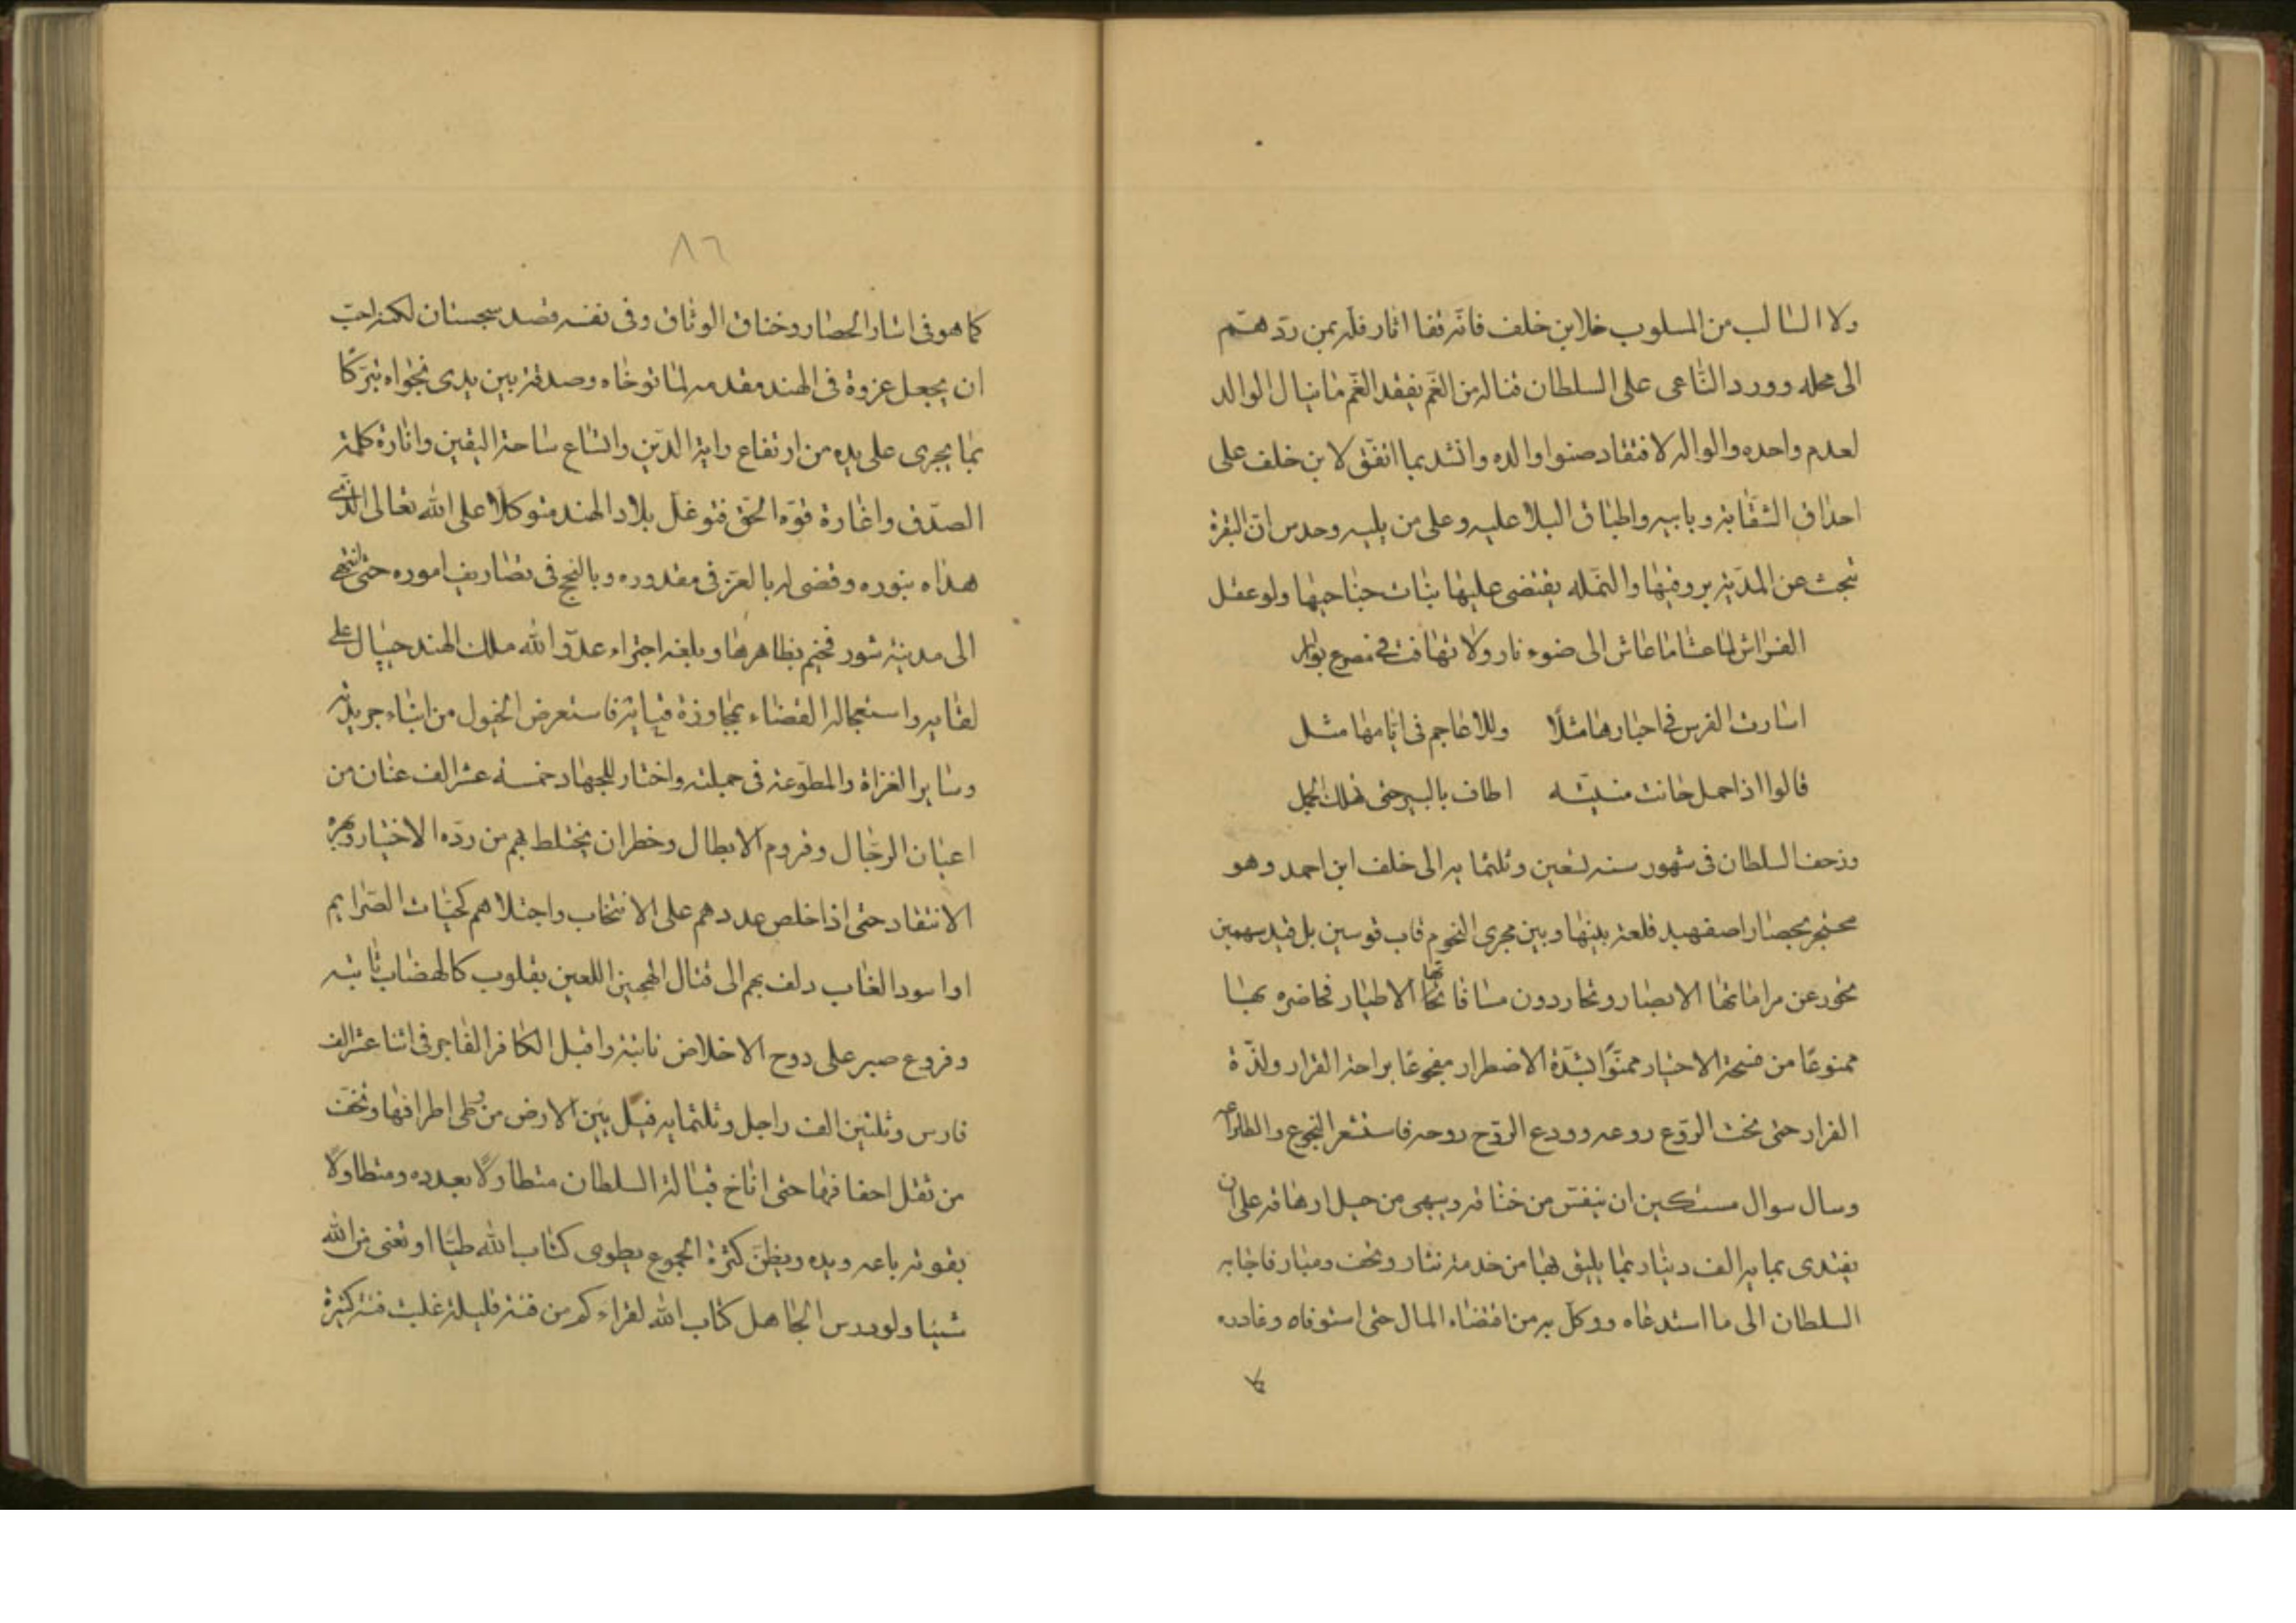 ولا السالب من المسلوب خلا ابن خلف فانه قفا اثار فله بمن ردّ همّم
الى محله وورد الناعى على السلطان فناله من الغم بفقد العم ما ينال الوالد
لعدم واحده والواله لافتقاد صنوا والده وانشد بما اتفق لابن خلف على
احذاق الشقا به وبابيه واطباق البلا عليه وعلى من يليه وحدس ان البقرة
تبحث عن المدية بروقيها والنمله يقتضى عليها نبات جناحيها ولو عقل
الفراش لما عشا ما عاش الى ضوء نار ولا تهافت فى مصرع بوار
اسارت الفرس فى اخبارها مثلًا وللاعاجم فى ايامها مثل
قالوا اذا حمل حانت منيته اطاف بالبير حتى يهلك الجمل
وزحف السلطان فى شهور سنه تسعين وثلثمايه الى خلف ابن احمد وهو
محتجر بحصار اصفهبد قلعة بينها وبين مجرى النجوم قاب قوسين بل قيد سهمين
تحور عن مراماتها الابصار وتحار دون مسافاتها الاطيار فحاصره بها
ممنوعًا من فسحة الاختيار ممنوًّا بشدّة الاضطرار مفجوعًا براحة القرار ولذّة
الفرار حتى نخب الروع روعه وودع الروح روحه فاستشعر النجوع والطاعه
وسال سوال مستكين ان ينفس من خناقه ويبهى من حبل ارهاقه على ان
يفتدى بمايه الف دينار بما يليق بها من خدمة نثار وتحف ومبار فاجابه
السلطان الى ما استدعاه ووكل به من اقتضاء المال حتى استوفاه وغادره
٨٦
كما هو فى اسار الحصار وخناق الوثاق وفى نفسه قصد سجستان لكنه احبّ
ان يجعل غزوة فى الهند مقدمه لما توخاه وصدقة بين يدى نجواه تبرّكًا
بما يجرى على يده من ارتفاع راية الدّين واتساع ساحة اليقين وانارة كلمة
الصدق واغارة قوّة الحق فتوغل بلاد الهند متوكّلا على الله تعالى الذى
هداه بنوره وقضى له بالعز فى مقدوره وبالنجح فى تصاريف اموره حتى انتهى
الى مدينة شور فخيم بظاهرها وبلغه اجتراء عدوّ الله ملك الهند جيبال على
لقايه واستعجاله القضاء بمجاوزة فيايه فاستعرض الخيول من ابناء جريدته
وساير الغزاة والمطوّعه فى جملته واختار للجهاد خمسه عشر الف عنان من
اعيان الرجال وقروم الابطال وخطر ان يختلط بهم من ردّه الاختيار
الانتقاد حتى اذا خلص عددهم على الانتخاب واجتلاهم كحيات الصرايم
او اسود الغاب دلف بهم الى قتال الهجين اللعين بقلوب كالهضاب ثابته
وفروع صبر على دوح الاخلاص نابتة واقبل الكافر الفاجر فى اثنا عشر الف
فارس وثلثين الف راجل وثلثمايه فيل يئن الارض من وطى اطرافها وتخف
من ثقل اخفافها حتى اناخ قبالة السلطان متطاولًا بعدده ومتطاولًا
بقوته باعه ويده ويظن كثرة الجموع يطوى كتاب الله طيّا او تغنى من الله
شيئا ولو درس الجاهل كتاب الله لقراء كم من فئة قليلة غلبت فئة كثيرة